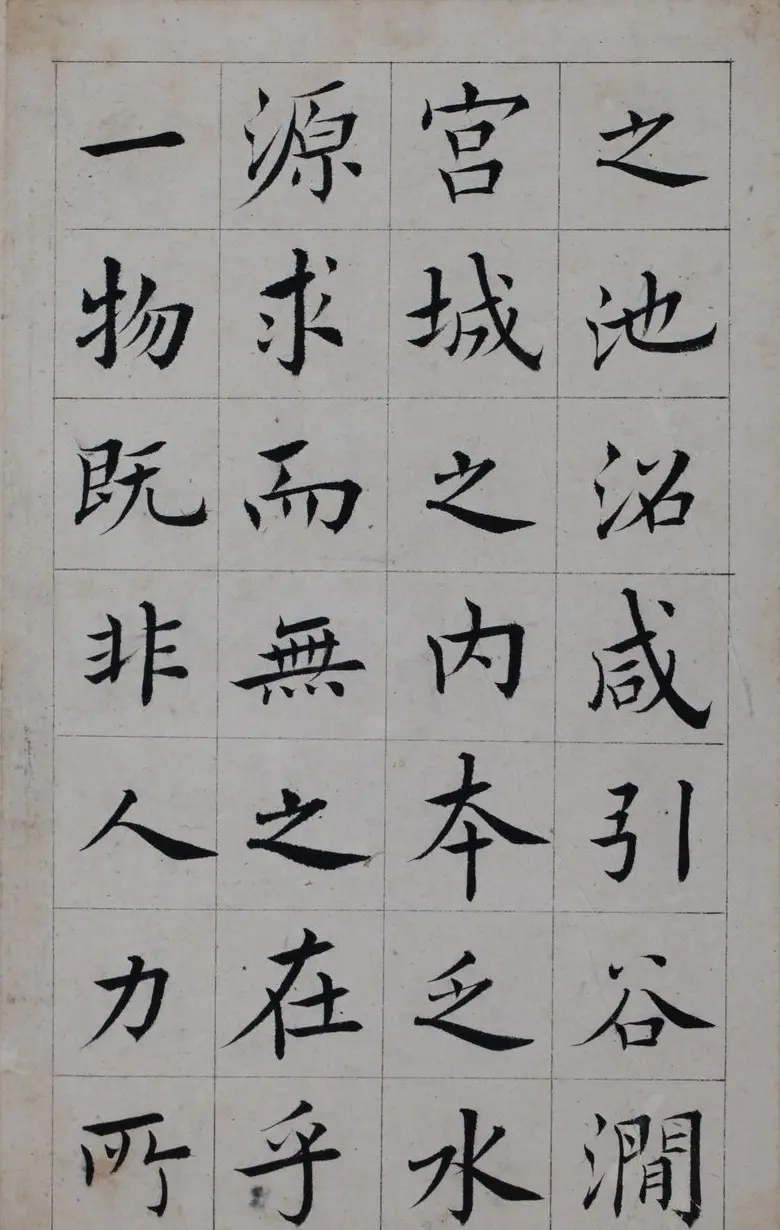 之池沼咸引谷澗
宮城之内本乏水
源求而無之在乎
一物既非人力所